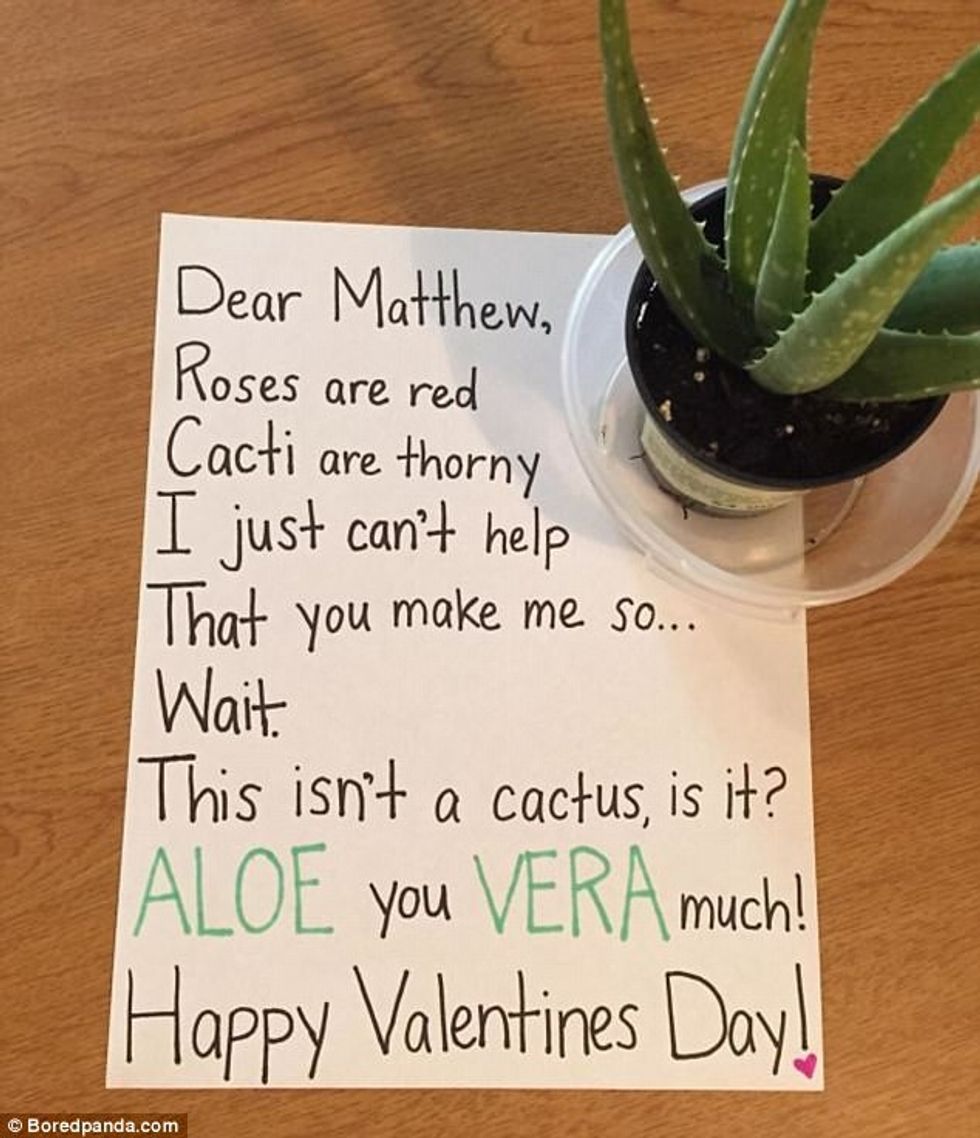 Dear Matthew,
Roses are red
Cacti are thorny
I just can't help
That you make me so...
Wait.
This isn't a cactus, is it?
ALOE you VERA much!
Happy Valentines Day!
© Boredpanda.com